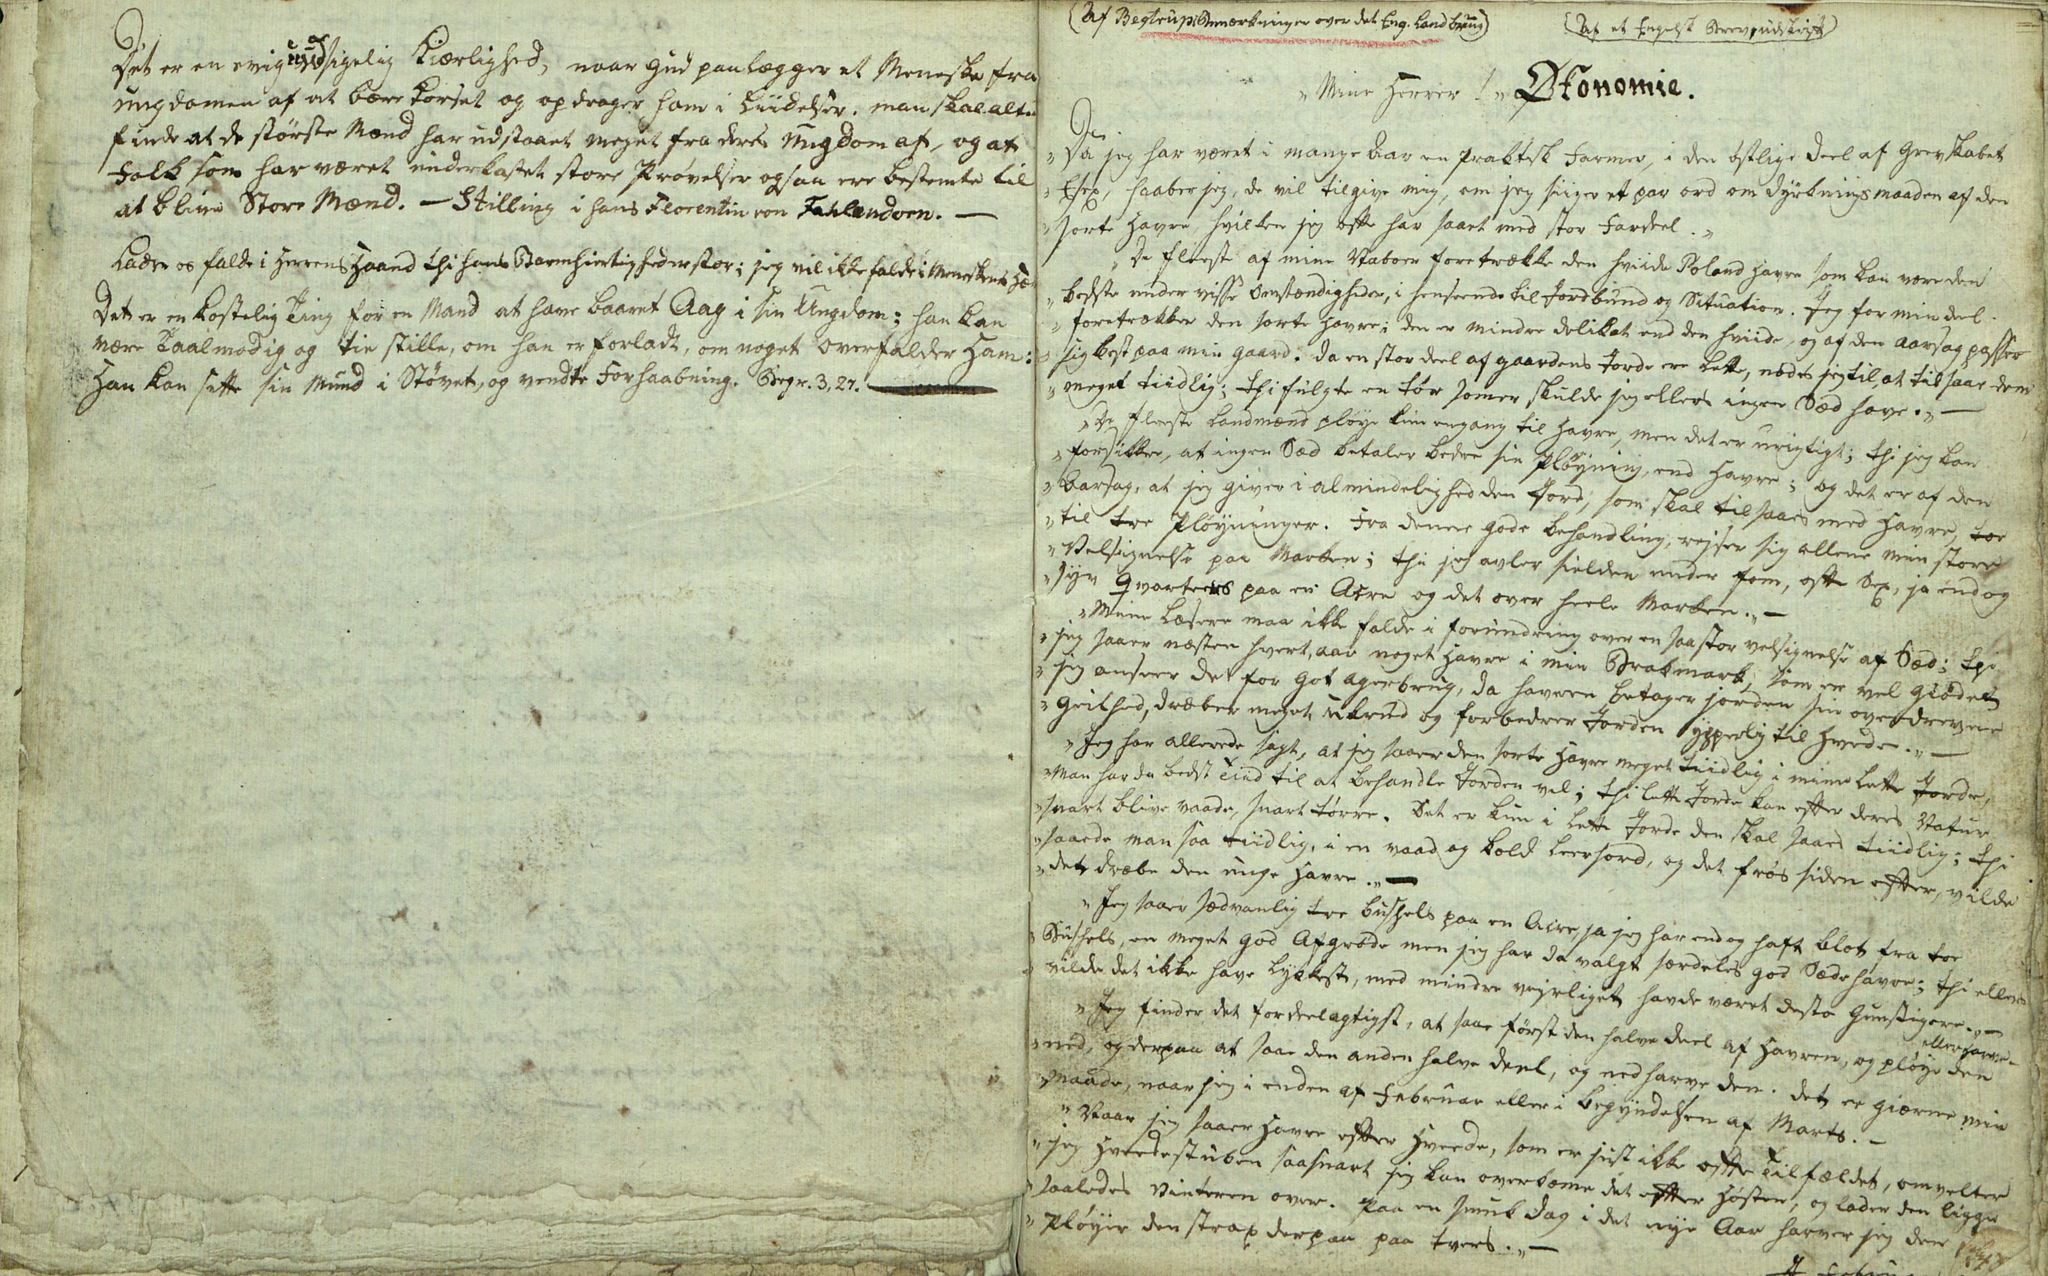 Det er en evig uudsigelig Kiærlighed, naar Gud paalægger et Meneske fra
ungdommen af at bære Korset og opdrager ham i Liidelser. man skal altid
finde at de største Mænd har udstaaet meget fra deres Ungdom af, og at
Folk som har været underkastet store Prøvelser ogsaa ere bestemte til
at blive Store Mænd. — Stilling i hans Florentin von Fahlendorn. —
Lader os falde i Herrens Haand thi hans Barmhiertighed er stor; jeg vil ikke falde i Meneskens Hæ
Det er en kostelig Ting for en Mand at have baaret Aag i sin Ungdom; han kan
være Taalmodig og tie stille, om han er forladt, om noget overfalder Ham:
Han kan sætte sin Mund i Støvet, og vendte Forhaabning. Begr. 3, 27.
(Af Begtrups Anmærkninger over det Eng. Landbrug)
(Af et Engelsk Brev, udskrift)
"Mine Herrer!" Økonomie.
"Da jeg har været i mange Aar en praktisk Farmer, i den østlige Deel af Grevskabet
"Esex, haaber jeg, de vil tilgive mig, om jeg siiger et par ord om Dyrkningsmaaden af den
"sorte Havre, hvilken jeg ofte har saaet med stor Fordeel."
"De fleest af mine Naboer foretrække den hviide Poland Havre som kan være den
"bedste under visse Omstændigheder, i henseende til Jordbund og Situation. Jeg for min deel
"foretrækker den sorte Havre; den er mindre delikat end den hviide, og af den aarsag passer
"sig best paa min gaard. Da en stor deel af gaardens Jorde ere lette, nødes jeg til, at tilsaae dem
"meget tiidlig; thi fulgte en tør Somer skulde jeg ellers ingen Sæd have." —
"De fleeste Landmænd pløye kun engang til Havre, men det er urigtigt; thi jeg kan
"forsikkre, at ingen Sæd betaler bedre sin Pløyning, end Havre; og det er af den
"Aarsag, at jeg giver i almindelighed den Jord, som skal tilsaaes med Havre, toe
"til tre Pløyninger. Fra denne gode behandling, reyser sig allene min store
"Velsignelse paa Marken; thi jeg avler sielden under fem, ofte Sex, ja endog
"syv Qvarteers paa en Acre og det over heele Marken." —
"Mine Læsere maa ikke falde i forundring over en saa stor velsignelse af Sæd; thi
"jeg saaer næsten hvert aar noget Havre i min Brakmark, som er vel giødet
"jeg anseer det for got agerbrug, da havren betager jorden sin overdrevene
"Geilhed, dræber meget ukrud og forbedrer Jorden ypperlig til Hvede." —
"Jeg har allerede sagt, at jeg saaer den sorte Havre meget tiidlig i mine lette Jorde,
"Man har da bedst Tiid til at behandle Jorden vel; thi lette Jorde kan efter deres Natur
"snart blive vaade, snart tørre. Det er kun i lette Jorde den skal saaes tiidlig; thi
"saaede man saa tiidlig, i en vaad og kold Leerjord, og det frøs siden efter, vilde
"det dræbe den unge Havre." —
"Jeg saaer sædvanlig tre Bushels paa en Acre, ja jeg har endog haft blot fra toe
"Bushels, en meget god Afgrøde men jeg har da valgt særdeles god Sædehavre; thi ellers
"vilde det ikke have lykkest, med mindre veyrliget havde været desto Gunstigere." —
"Jeg finder det fordeelagtigst, at saae først den halve deel af Havren, og pløye den
eller harve
"ned, og derpaa at saae den anden halve deel, og nedharve den. Det er giærne min
"Maade, naar jeg i enden af Februar eller i begyndelsen af Marts. —
"Naar jeg saaer Havre efter Hveede, som er just ikke ofte Tilfældet, omvelter
"jeg Hveedestuben saasnart jeg kan overkome det efter Høsten, og lader den ligge
"saaledes Vinteren over. Paa en smuk Dag i det nye Aar harver jeg den
"pløyer den strax derpaa paa tvers." —